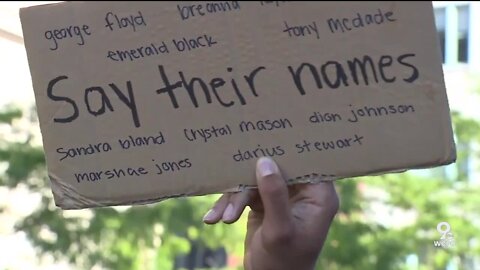 george floyd breonna
tony mcdade
emerald black
Say their names
sandra bland crystal mason dian johnson
marshae jones darius stewart
9